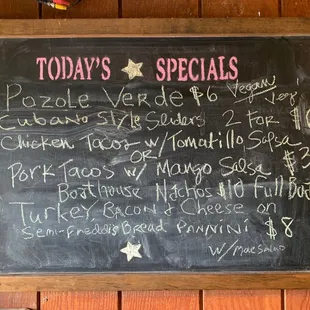 TODAY'S SPECIALS
Pozole Verde $6 Vegan/
Cubano Style Sliders 2 FOR $
Chicken Tacos w/Tomatillo Salsa
OR $3
Pork Tacos w/ Mango Salsa
Boathouse Nachos $10 Full
Turkey, Bacon & Cheese on
Semi-Freddis Bread PANNINI $8
w/Mac Salad